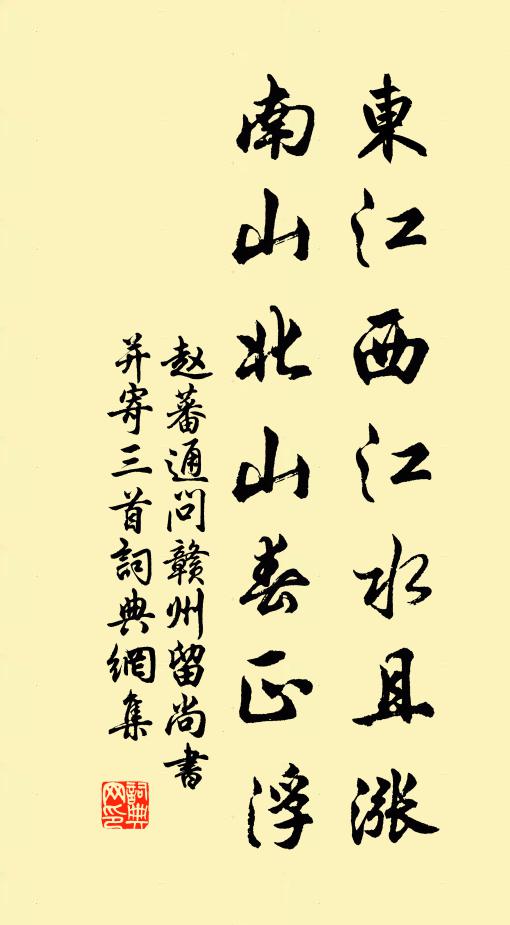 東江西江水且漲
南山北山春正浮
赵蕃通问贛州留尚書
并寄三首詞典網集
詞典
网印